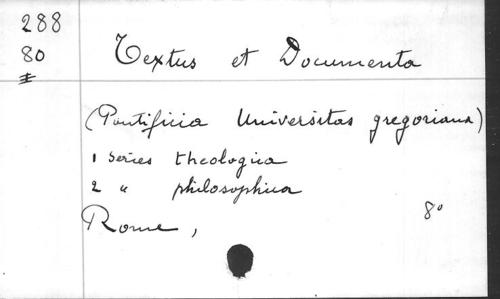 288
80
Textus et Documenta
(Pontificia Universitas gregoriana)
1 Series theologica
2 " philosophica
Rome, 8°